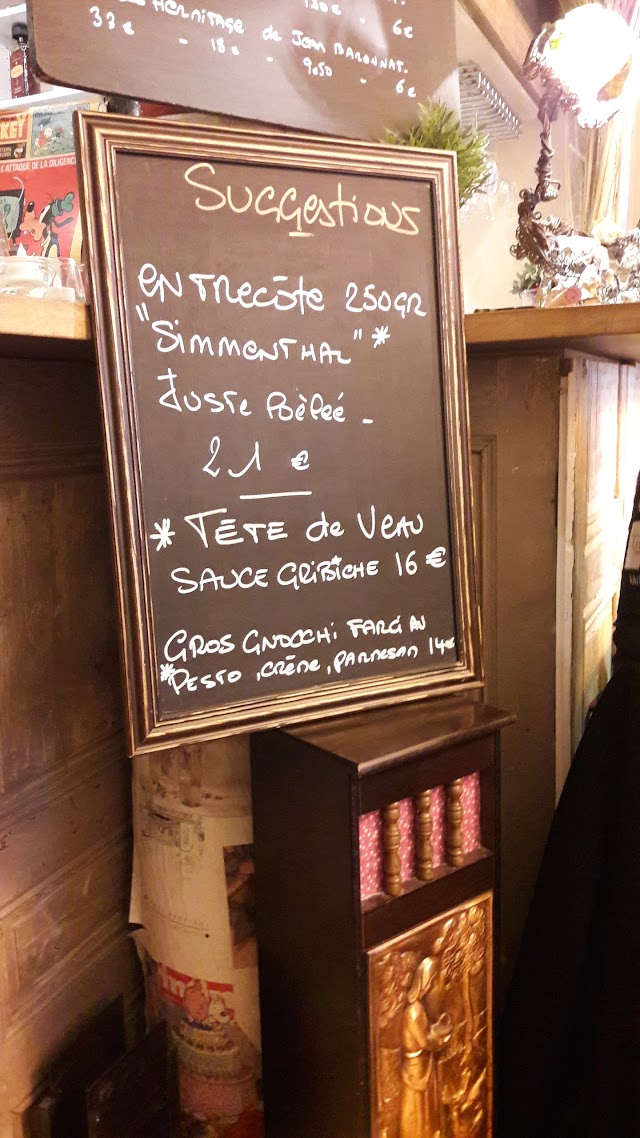 130€ - 6€
HERMITAGE de JEAN BARONNAT.
33€ - 18€ - 9€50 - 6€
L'ATTAQUE DE LA DILIGENCE
SUGGESTIONS
ENTRECÔTE 250GR
"SIMMENTHAL" *
JUSTE POÈLÉÉ -
21 €
* TÊTE de VEAU
SAUCE GRIBICHE 16 €
GROS GNOCCHI FARCI AU
*PESTO, CRÈME, PARMESAN 14€